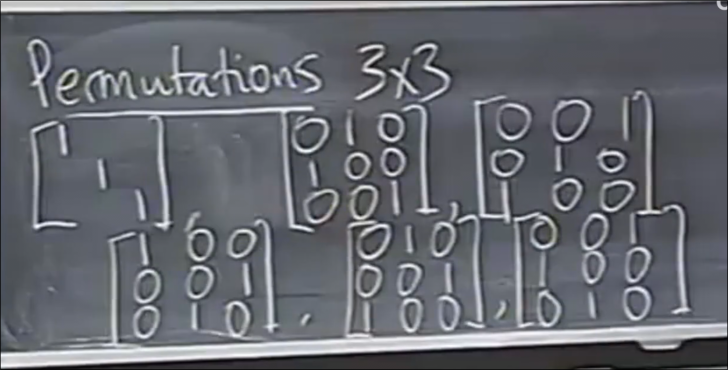 Permutations 3x3
[1 1 1] [0 1 0 , [0 0 1
1 0 0 0 1 0
0 0 1] 1 0 0]
[1 0 0 , [0 1 0 , [0 0 1
0 0 1 0 0 1 1 0 0
0 1 0] 1 0 0] 0 1 0]